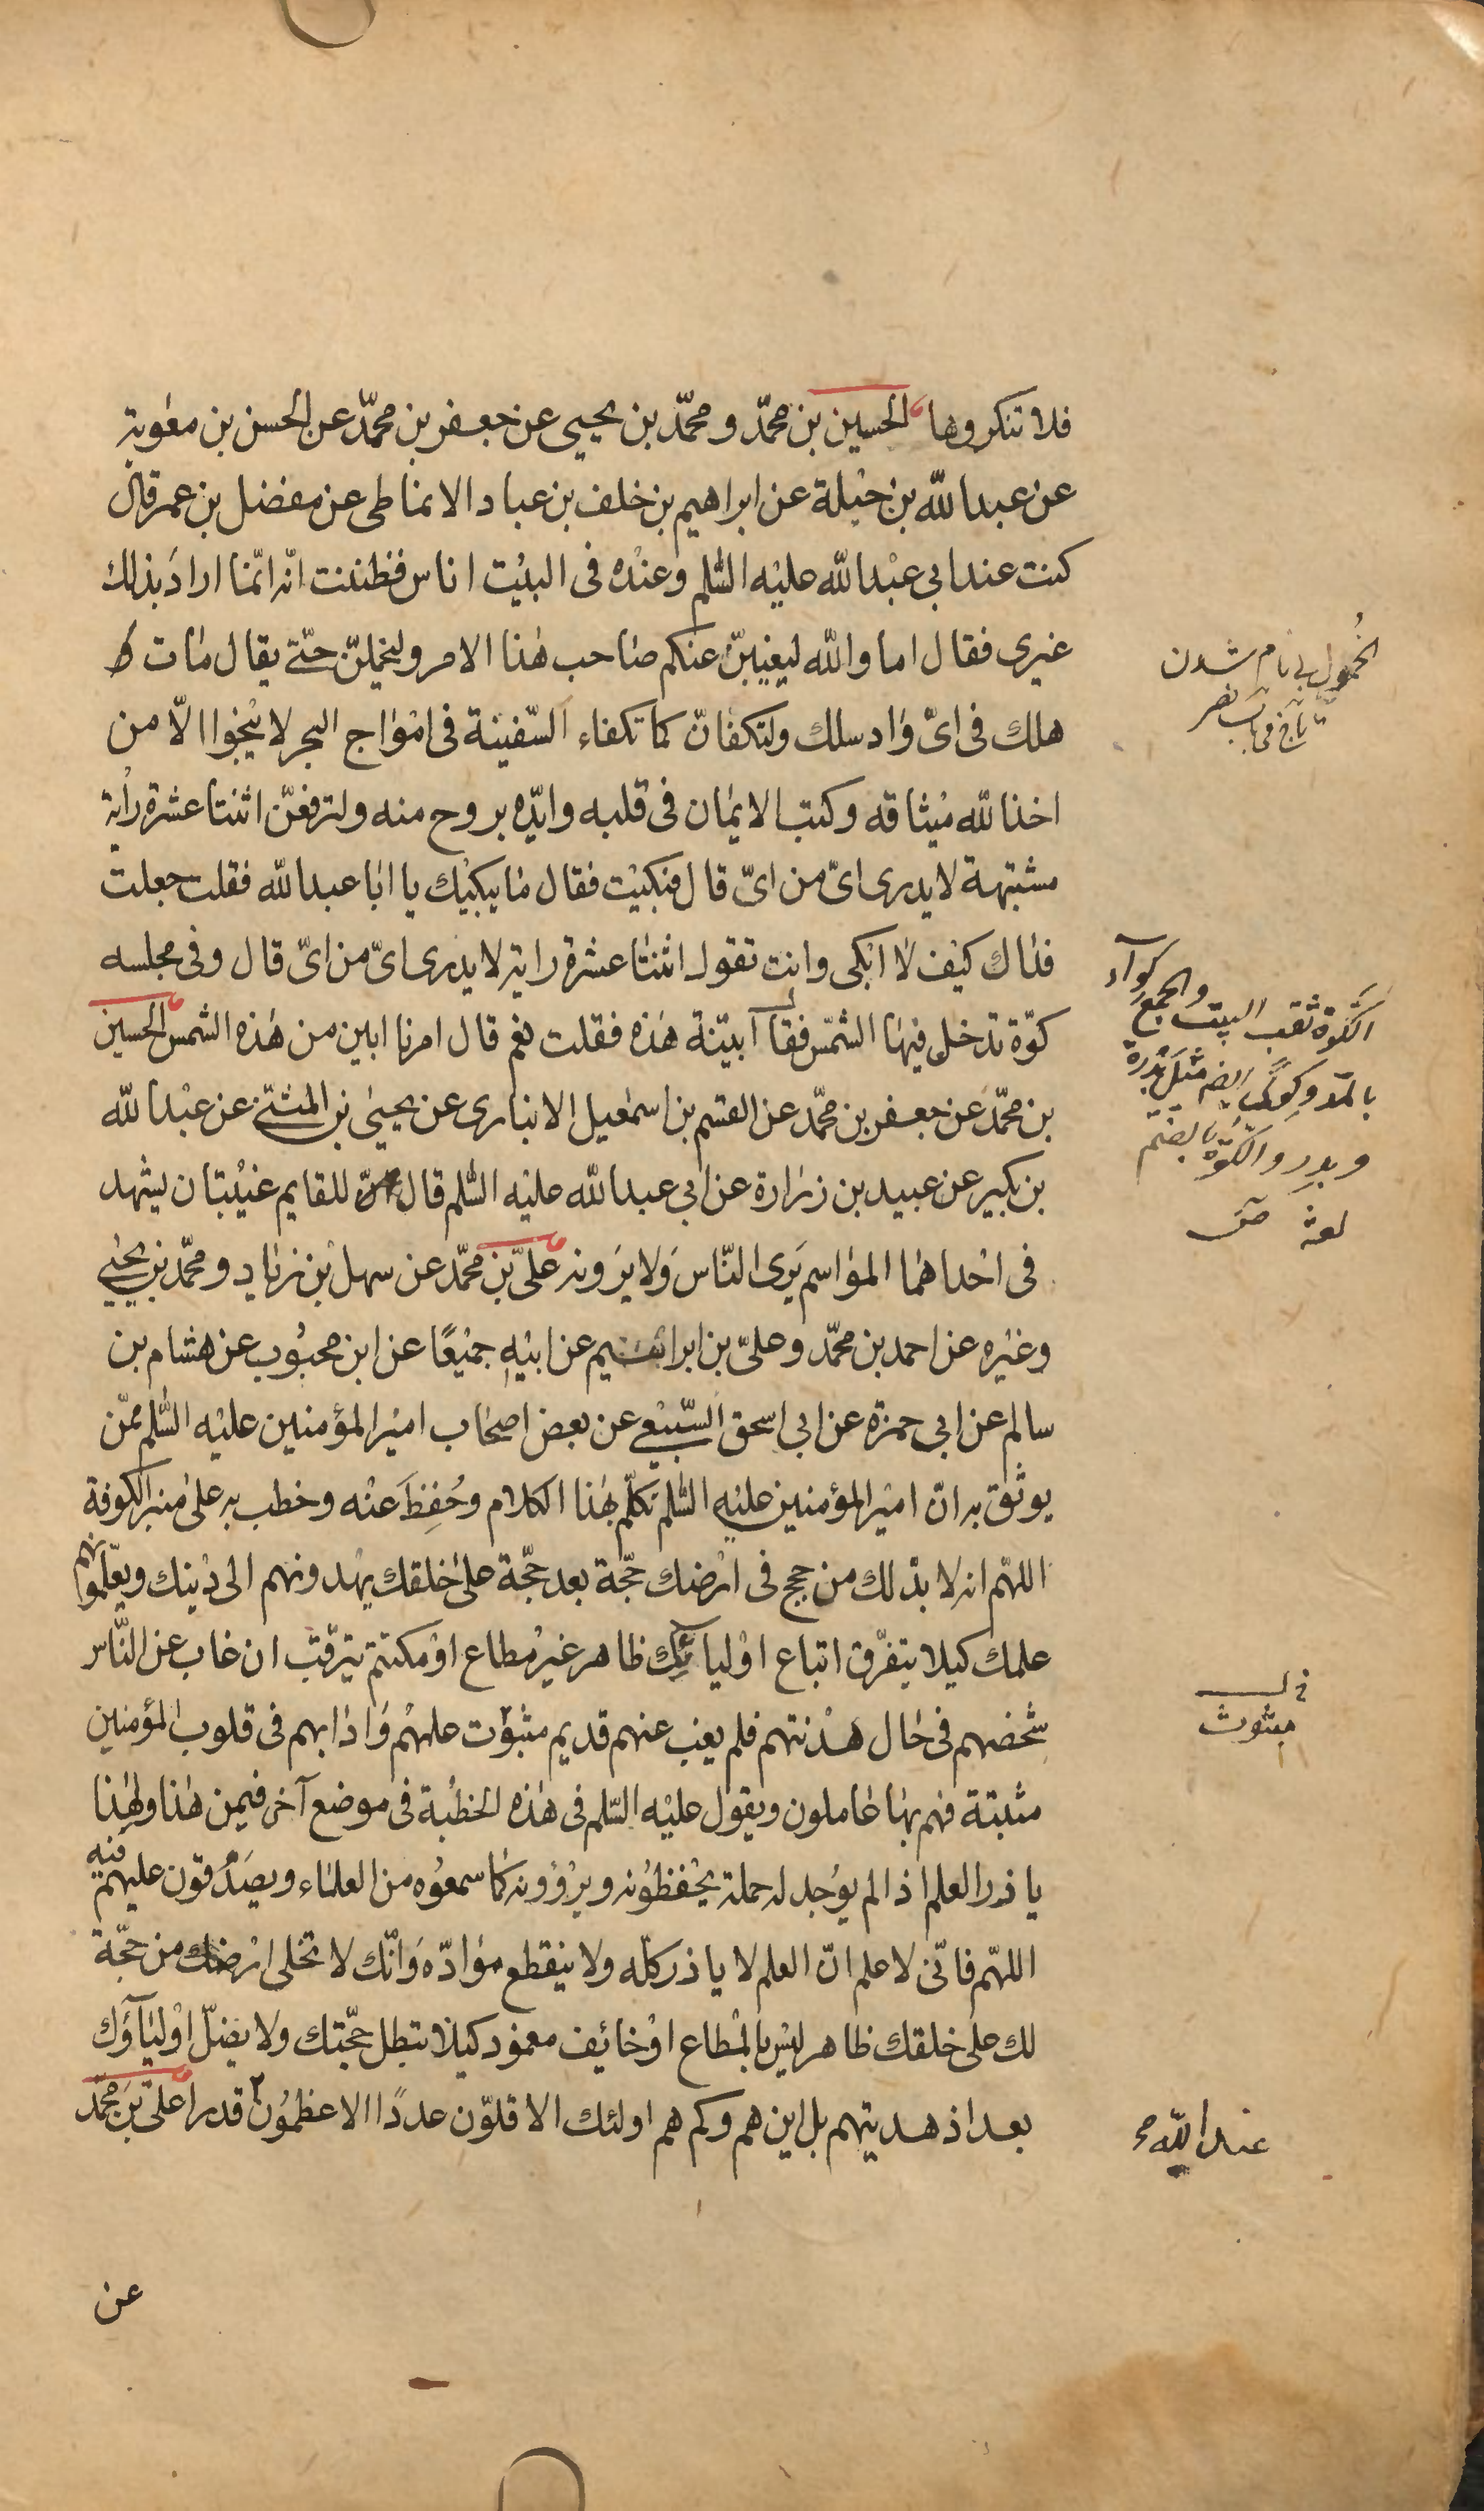 فلا تنكروها الحسين بن محمّد و محمّد بن يحيى عن جعفر بن محمّد عن الحسن بن معٰوية
عن عبدالله بن جبلة عن ابراهيم بن خلف بن عباد الانماطى عن مفضل بن عمر قال
كنت عند ابى عبدالله عليه السّلم وعنده فى البيت اناس فظننت انّه انّما اراد بذلك
غيرى فقال اما والله ليغيبنّ عنكم صاحب هٰذا الامر وليخملنّ حتّى يقال مات
هلك فى اىّ واد سلك ولتكفانّ كما تكفاء السّفينة فى امواج البحر لا ينجوا الّا من
اخذ الله ميثاقه وكتب الايمان فى قلبه وايّده بروح منه ولترفعنّ اثنتا عشرة راية
مشتبهة لا يدرى اىّ من اىّ قال فبكيت فقال ما يبكيك يا ابا عبدالله فقلت جعلت
فداك كيف لا ابكى وانت تقول اثنتا عشرة راية لا يدرى اىّ من اىّ قال وفى مجلسه
كوّة تدخل فيها الشمس فقال أبيّنة هٰذه فقلت نعم قال امرنا ابين من هٰذه الشمس الحسين
بن محمّد عن جعفر بن محمّد عن القسم بن اسمٰعيل الانبارى عن يحيىٰ بن المثنّى عن عبدالله
بن بكير عن عبيد بن زرارة عن ابى عبدالله عليه السّلم قال للقايم غيبتان يشهد
فى احداهما المواسم يَرى النّاس ولا يَرونه علىّ بن محمّد عن سهل بن زياد و محمّد بن يحيى
وغيره عن احمد بن محمّد وعلىّ بن ابراهيم عن ابيه جميعًا عن ابن محبُوب عن هشام بن
سالم عن ابى حمزة عن ابى اسحق السّبيعى عن بعض اصحاب امير المؤمنين عليه السّلم ممّن
يوثق به انّ امير المؤمنين عليه السّلم تكلّم بهٰذا الكلام وحُفِظَ عنه وخطب به علىٰ منبر الكوفة
اللهّم انه لا بدّ لك من حجج فى ارضك حجّة بعد حجّة علىٰ خلقك يهدونهم الى دينك ويعلّمونهم
علمك كيلا يتفرّق اتباع اوليائك ظاهر غير مطاع او مكتتم يترقّب ان غاب عن النّاس
شخصهم فى حال هدنتهم فلم يغب عنهم قديم مبثوت علمهم واٰدابهم فى قلوب المؤمنين
مثبتة فهم بها عاملون ويقول عليه السّلم فى هٰذه الخطبة فى موضع آخر فيمن هٰذا ولهٰذا
ياذر العلم اذا لم يوجد له حملة يحفظونه ويروونه كما سمعوه من العلماء ويصدّقون عليهم فيه
اللهّم فانّى لاعلم انّ العلم لا ياذر كلّه ولا ينقطع موادّه وانّك لا تخلى ارضك من حجّة
لك علىٰ خلقك ظاهر ليس بالمطاع او خائف مغمود كيلا تبطل حجّتك ولا يضلّ اولياؤك
بعد اذ هديتهم بل اين هم وكم هم اولئك الاقلّون عددًا الاعظمون قدرا علىّ بن محمّد
عن
الخُمول بى نام شدن
تاج فى باب نصر
الكَوّة ثقب البيت والجمع كِوآء
بالمدّ وكِوًى ايضا مثل بَدْرة
وبِدَر والكُوّة بالضم
لغة ص
فى
مبثوث
عند الله